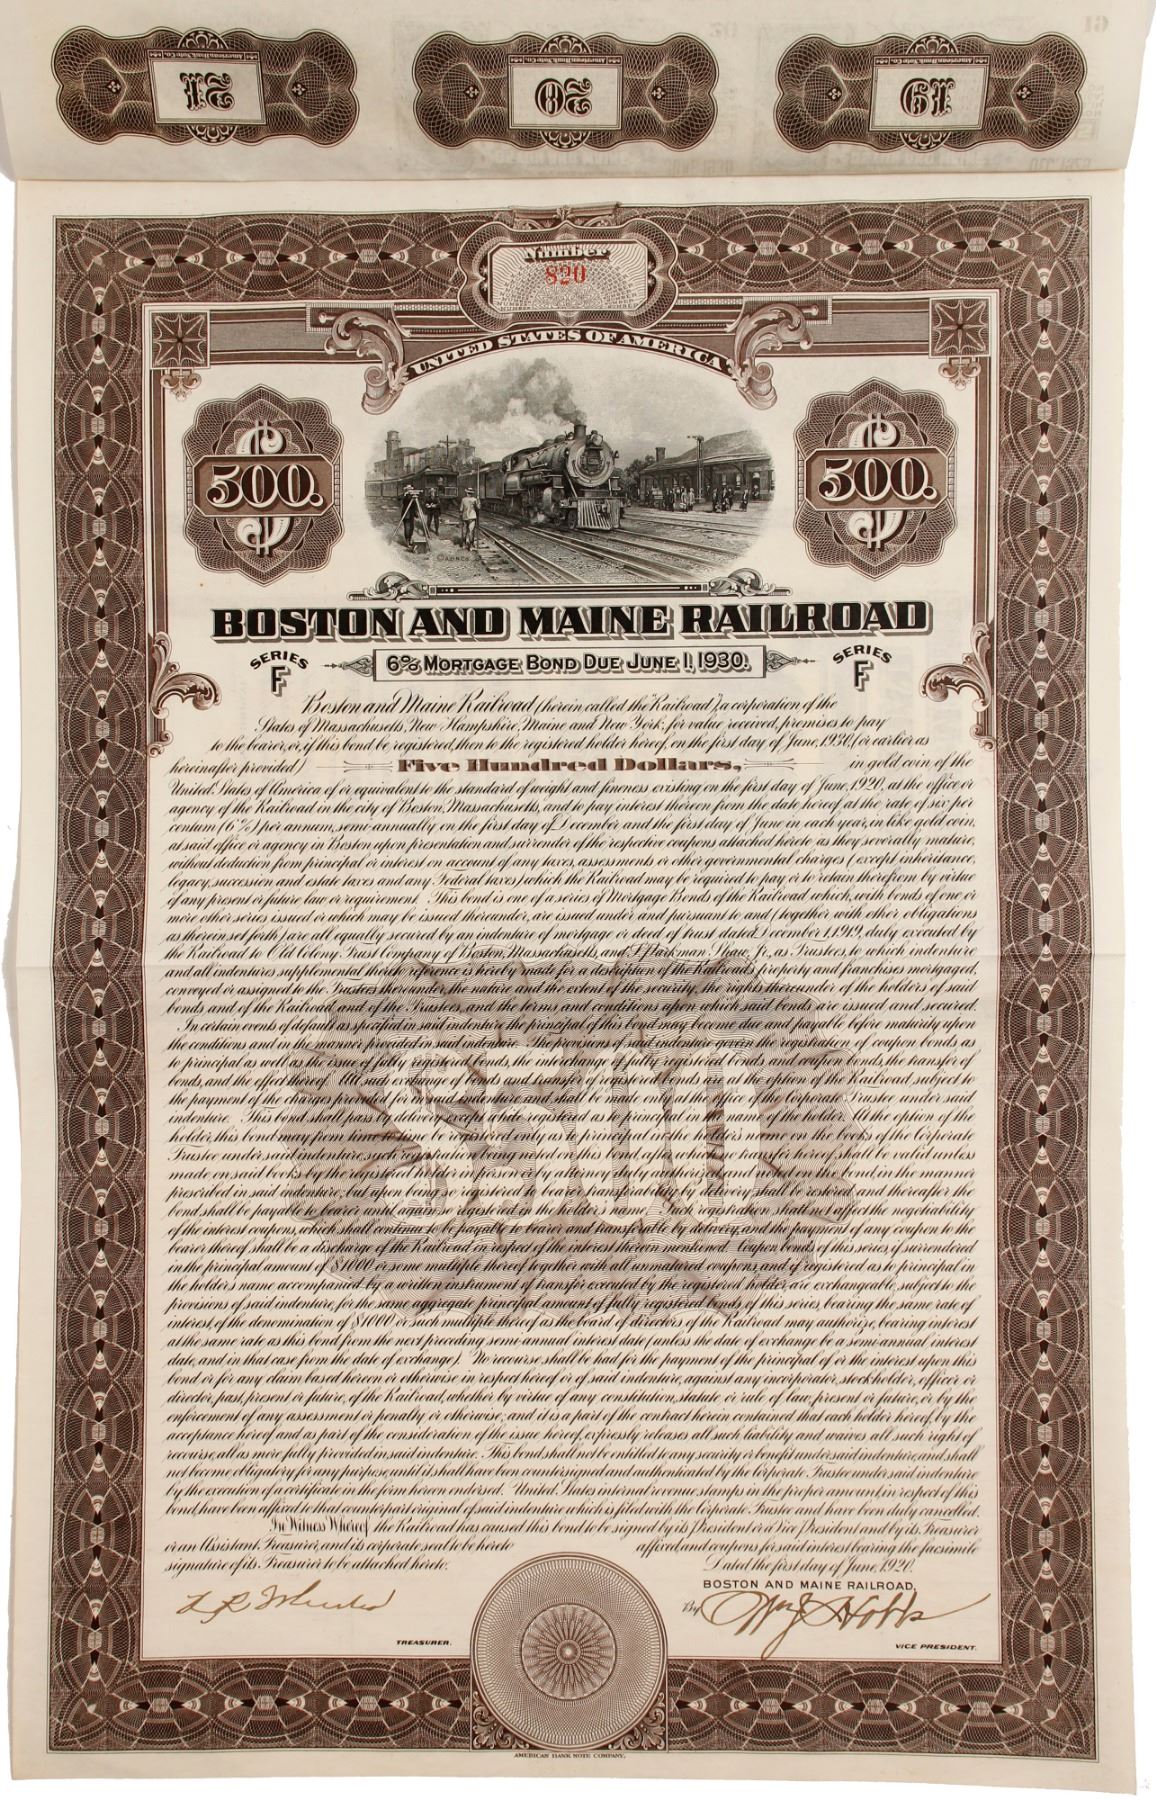 American Bank Note Co.
21
American Bank Note Co.
20
American Bank Note Co.
19
Number
820
UNITED STATES OF AMERICA
$ 500.
$ 500.
BOSTON AND MAINE RAILROAD
SERIES F
6% MORTGAGE BOND DUE JUNE 1, 1930.
SERIES F
Boston and Maine Railroad (herein called the "Railroad"), a corporation of the
States of Massachusetts, New Hampshire, Maine and New York, for value received, promises to pay
to the bearer, or, if this bond be registered, then to the registered holder hereof, on the first day of June, 1930, (or earlier as
hereinafter provided) Five Hundred Dollars, in gold coin of the
United States of America of or equivalent to the standard of weight and fineness existing on the first day of June, 1920, at the office or
agency of the Railroad in the city of Boston, Massachusetts, and to pay interest thereon from the date hereof at the rate of six per
centum (6%) per annum, semi-annually on the first day of December and the first day of June in each year, in like gold coin,
at said office or agency in Boston upon presentation and surrender of the respective coupons attached hereto as they severally mature,
without deduction from principal or interest on account of any taxes, assessments or other governmental charges (except inheritance,
legacy, succession and estate taxes and any Federal taxes) which the Railroad may be required to pay or to retain therefrom by virtue
of any present or future law or requirement. This bond is one of a series of Mortgage Bonds of the Railroad which, with bonds of one or
more other series issued or which may be issued thereunder, are issued under and pursuant to and (together with other obligations
as therein set forth) are all equally secured by an indenture of mortgage or deed of trust dated December 1, 1919, duly executed by
the Railroad to Old Colony Trust Company of Boston, Massachusetts, and S. Parkman Shaw, Jr., as Trustees, to which indenture
and all indentures supplemental thereto reference is hereby made for a description of the Railroad's property and franchises mortgaged,
conveyed or assigned to the Trustees thereunder, the nature and the extent of the security, the rights thereunder of the holders of said
bonds and of the Railroad and of the Trustees, and the terms and conditions upon which said bonds are issued and secured.
In certain events of default as specified in said indenture the principal of this bond may become due and payable before maturity upon
the conditions and in the manner provided in said indenture. The provisions of said indenture govern the registration of coupon bonds as
to principal as well as the issue of fully registered bonds, the interchange of fully registered bonds and coupon bonds, the transfer of
bonds, and the effect thereof. All such exchange of bonds and transfer of registered bonds are at the option of the Railroad subject to
the payment of the charges provided for in said indenture and shall be made only at the office of the Corporate Trustee under said
indenture. This bond shall pass by delivery except while registered as to principal in the name of the holder. At the option of the
holder, this bond may from time to time be registered only as to principal in the holder's name on the books of the Corporate
Trustee under said indenture, such registration being noted on this bond, after which no transfer hereof shall be valid unless
made on said books by the registered holder in person or by attorney duly authorized, and noted on the bond, in the manner
prescribed in said indenture; but upon being so registered to bearer transferability by delivery shall be restored, and thereafter the
bond shall be payable to bearer until again so registered in the holder's name. Such registration shall not affect the negotiability
of the interest coupons, which shall continue to be payable to bearer and transferable by delivery, and the payment of any coupon to the
bearer thereof shall be a discharge of the Railroad in respect of the interest therein mentioned. Coupon bonds of this series, if surrendered
in the principal amount of $1000 or some multiple thereof together with all unmatured coupons, and, if registered as to principal in
the holder's name accompanied by a written instrument of transfer executed by the registered holder, are exchangeable, subject to the
provisions of said indenture, for the same aggregate principal amount of fully registered bonds of this series, bearing the same rate of
interest, of the denomination of $1000 or such multiple thereof as the board of directors of the Railroad may authorize, bearing interest
at the same rate as this bond from the next preceding semi-annual interest date (unless the date of exchange be a semi-annual interest
date, and in that case from the date of exchange). No recourse shall be had for the payment of the principal of or the interest upon this
bond or for any claim based hereon or otherwise in respect hereof or of said indenture, against any incorporator, stockholder, officer or
director, past, present or future, of the Railroad, whether by virtue of any constitution, statute or rule of law, present or future, or by the
enforcement of any assessment or penalty or otherwise; and it is a part of the contract herein contained that each holder hereof, by the
acceptance hereof and as part of the consideration of the issue hereof, expressly releases all such liability and waives all such right of
recourse, all as more fully provided in said indenture. This bond shall not be entitled to any security or benefit under said indenture, and shall
not become obligatory for any purpose, until it shall have been countersigned and authenticated by the Corporate Trustee under said indenture
by the execution of a certificate in the form hereon endorsed. United States internal revenue stamps in the proper amount, in respect of this
bond, have been affixed to that counterpart original of said indenture which is filed with the Corporate Trustee and have been duly cancelled.
In Witness Whereof the Railroad has caused this bond to be signed by its President or a Vice President and by its Treasurer
or an Assistant Treasurer, and its corporate seal to be hereto affixed, and coupons for said interest bearing the facsimile
signature of its Treasurer to be attached hereto. Dated the first day of June, 1920.
BOSTON AND MAINE RAILROAD,
By Wm J Hobbs
TREASURER.
VICE PRESIDENT.
AMERICAN BANK NOTE COMPANY.